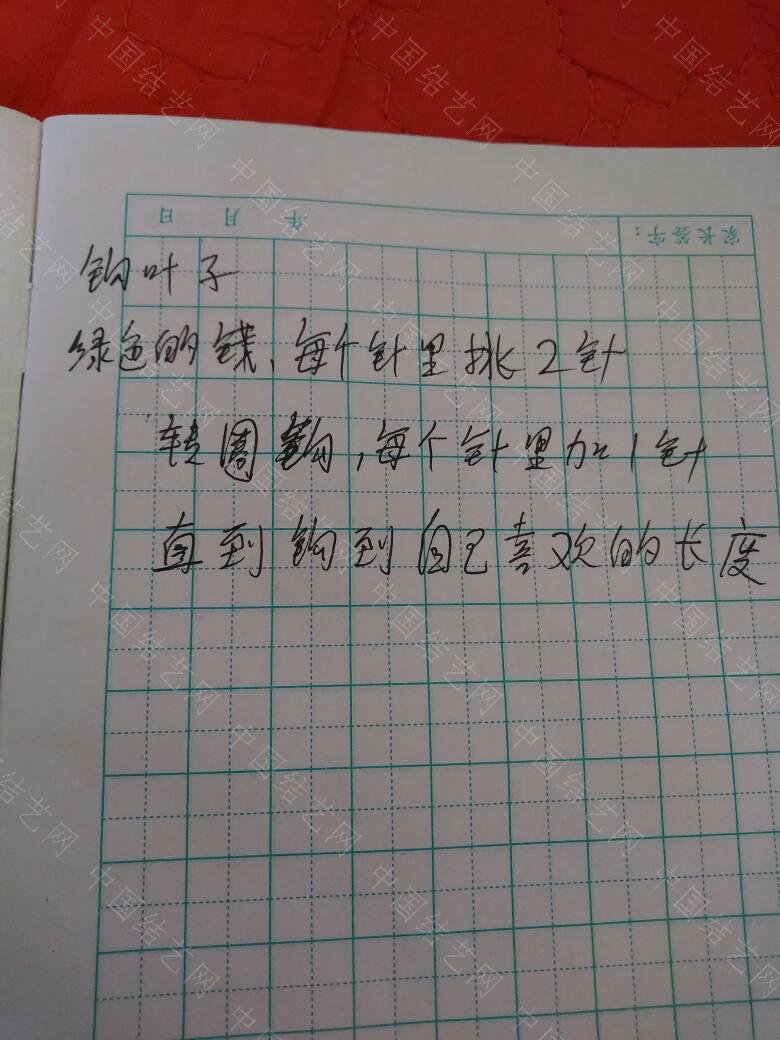 年 月 日
家长签字：
钩叶子
绿色的钱、每个针里挑2针
转圈钩,每个针里加1针
直到钩到自己喜欢的长度
中国结艺网